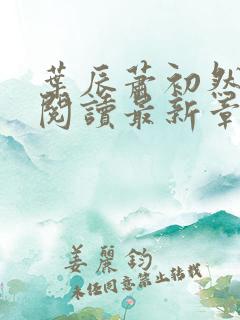 葉辰蕭初然
閱讀最新章
姜麗鈞
未经同意禁止转载